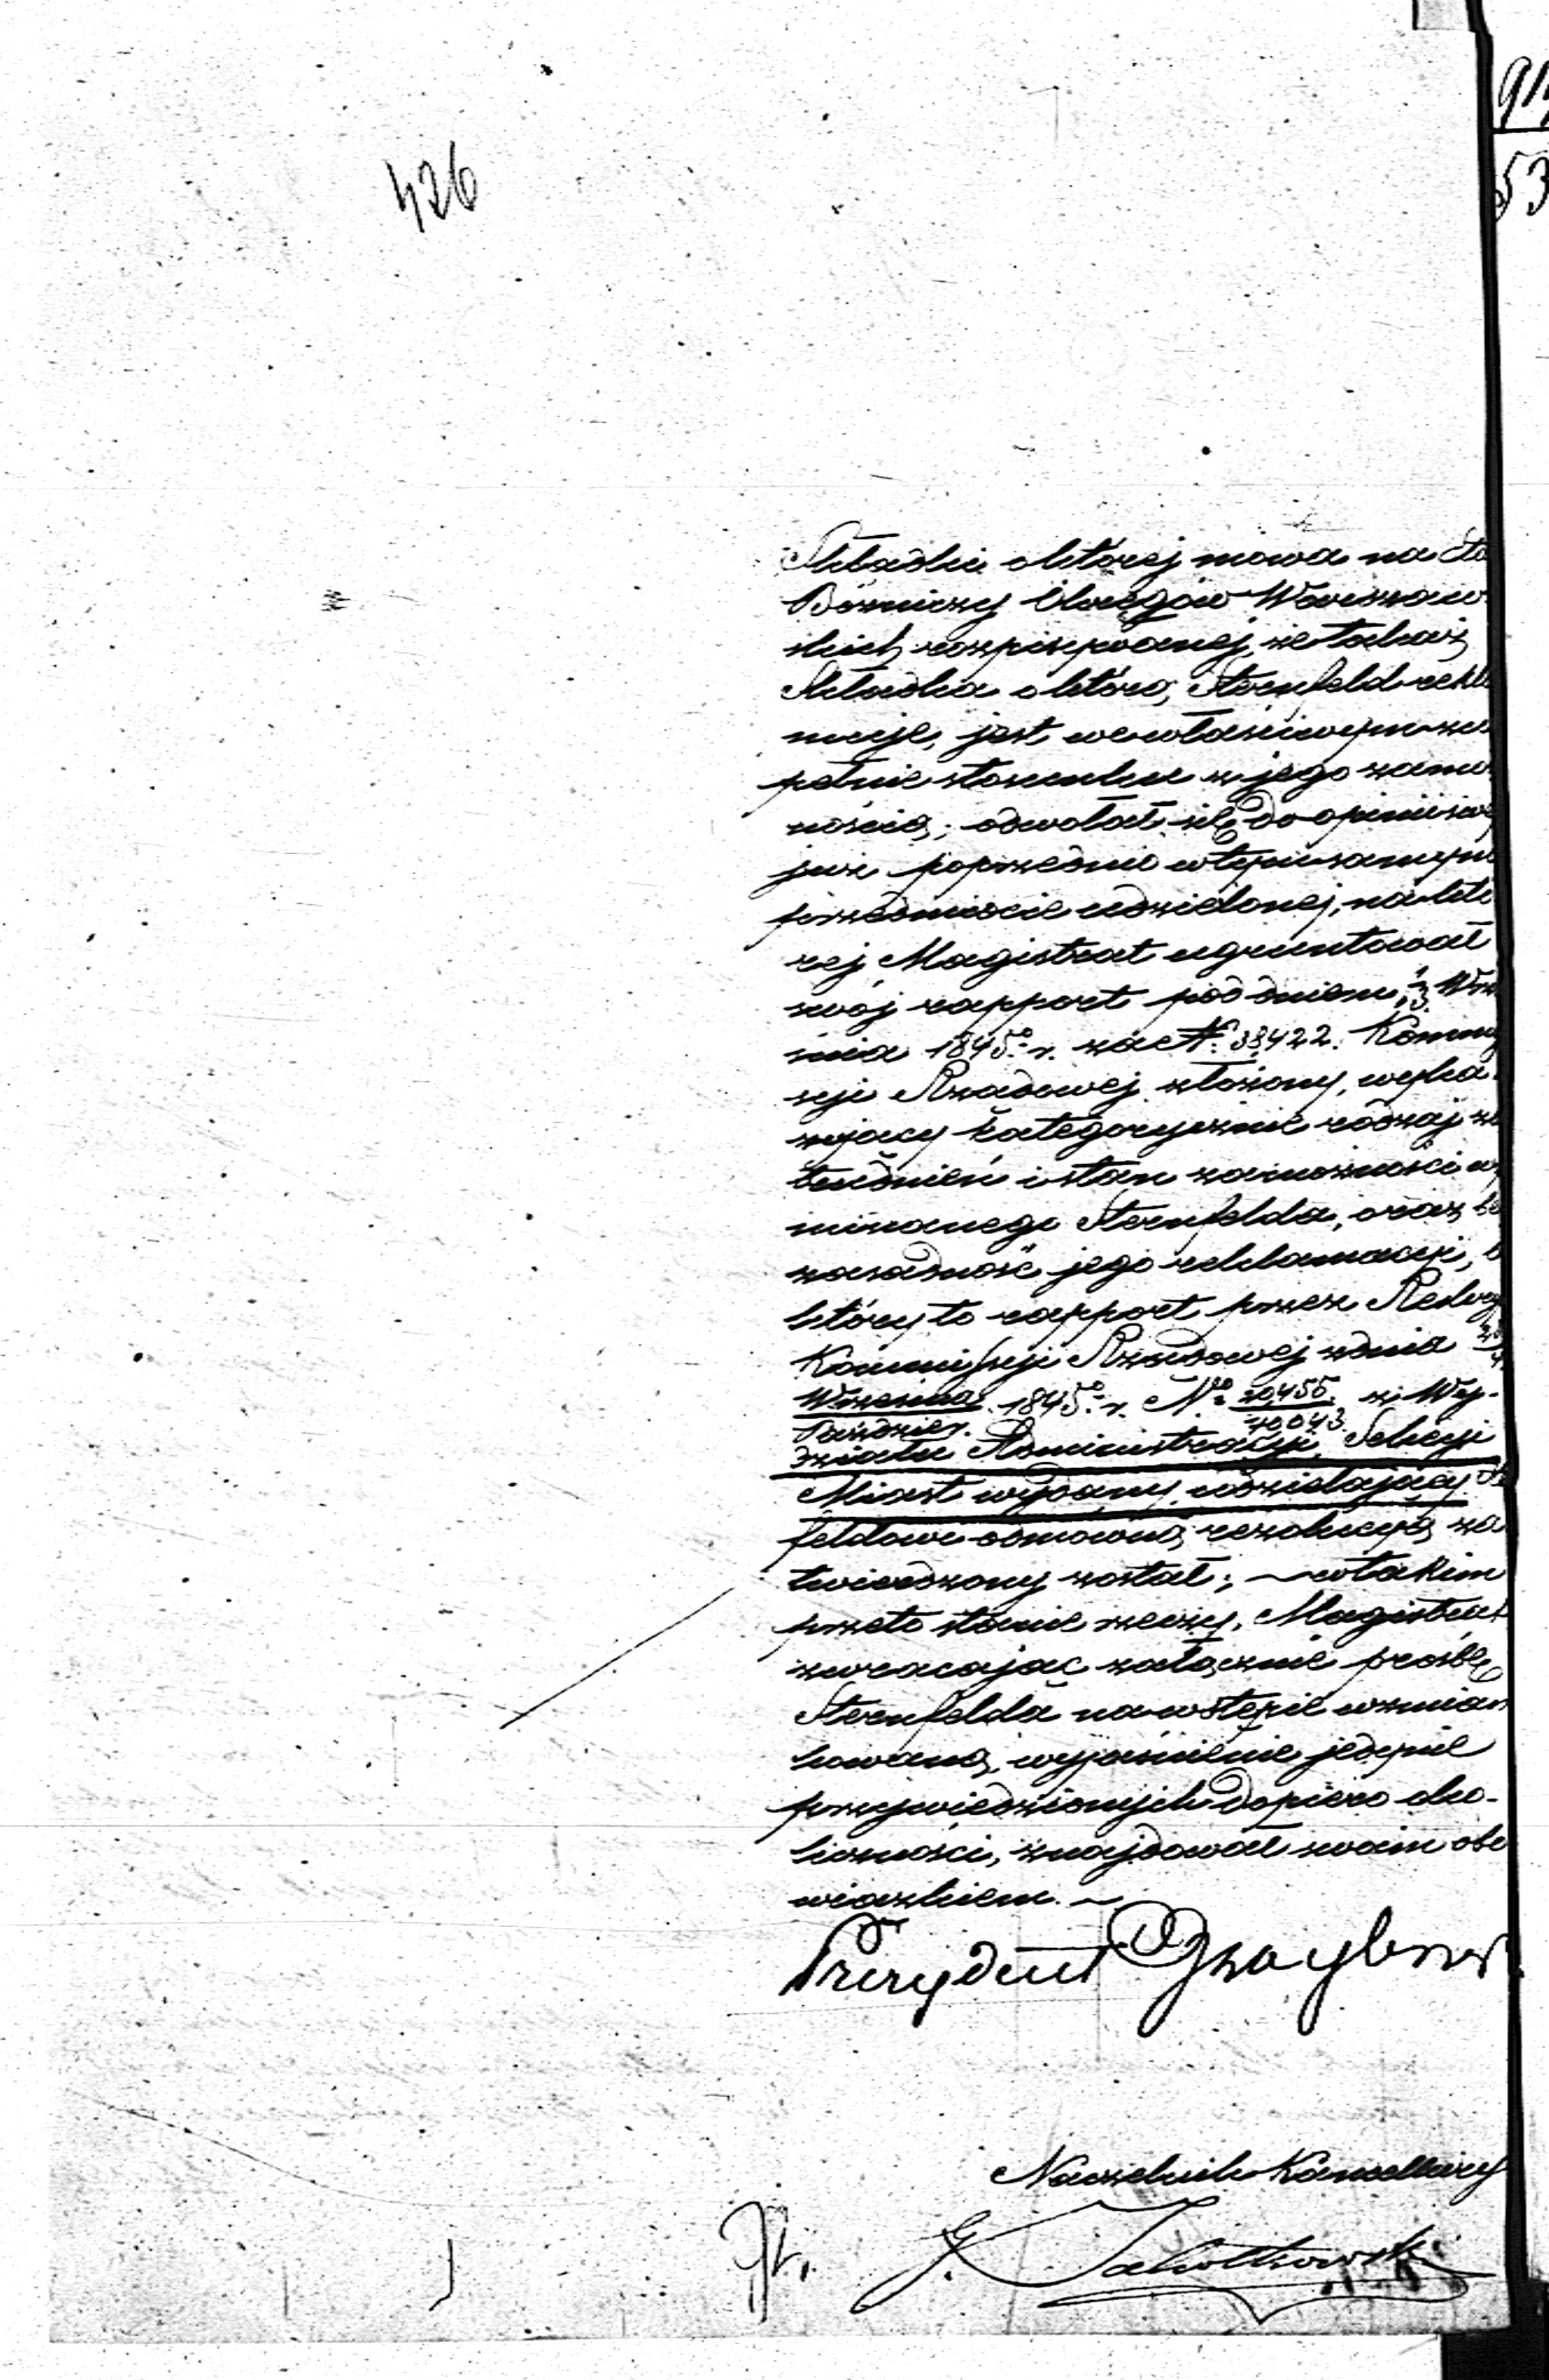 426
53
Składki o której mowa na
Bóżniczy Okręgów Warszaw-
skich rozpisywanej, że takaż
Składka o którą Sternfeld rekla
muje, jest we właściwym zu
pełnie stosunku z jego zamo
nością; odwołał się do opinii swej
już poprzednio w tym samym
przedmiocie udzielonej, na któ
rej Magistrat ugruntował
swój rapport pod dniem 1/13 Wrze
śnia 1845 r. za N: 38,422. Kommi
syi Rządowej złożony, wyka
zujący kategorycznie rodzaj za
trudnień i stan zamożności
mienanego Sternfelda, oraz be
zasadność jego reklamacyi,
który to rapport przez Reskry
Kommissyi Rządowej z dnia
Września/Paździer. 1845 r. No 20,455/40,043 z Wy-
działu Administracyi, Sekcyi
Miast wydany, udzielający
feldowi odmowną rezolucyą za
twierdzony został; — w takim
przeto stanie rzeczy, Magistrat
zwracając załącznie prośbę
Sternfelda na wstępie wzmian
kowaną, wyjaśnienie jedynie
przywiedzionych dopiero oko-
liczności, znajdował swoim obo
wiązkiem. ~
Prezydent
Naczelnik Kancellaryi